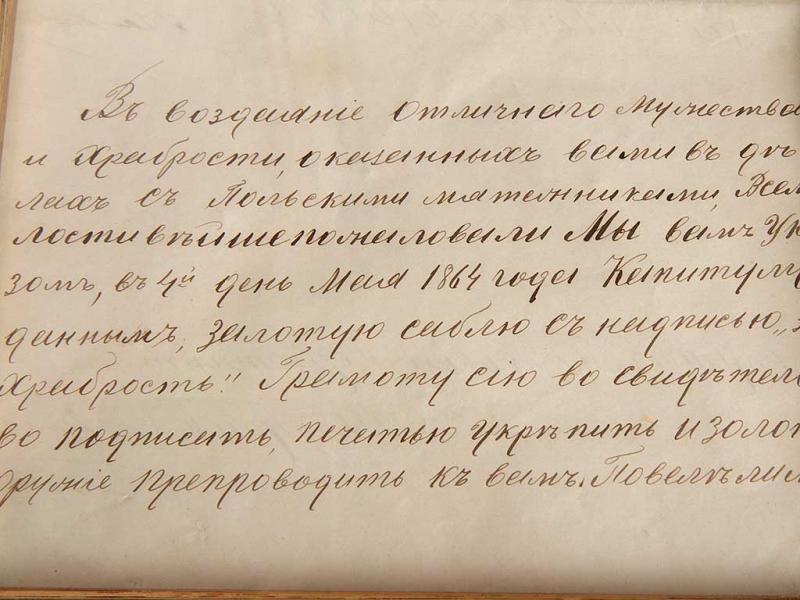 Въ воздаяніе отличнаго мужества
и храбрости, оказанныхъ вами въ дѣ
лахъ съ Польскими мятежниками, Всем
лостивѣйше пожаловали Мы вамъ Ук
зомъ, въ 4й день Мая 1864 года Капитулу
даннымъ, золотую саблю съ надписью „з
храбрость". Грамоту сію во свидѣтел
во подписать, печатью укрѣпить и золот
оружіе препроводить къ вамъ. Повелѣли